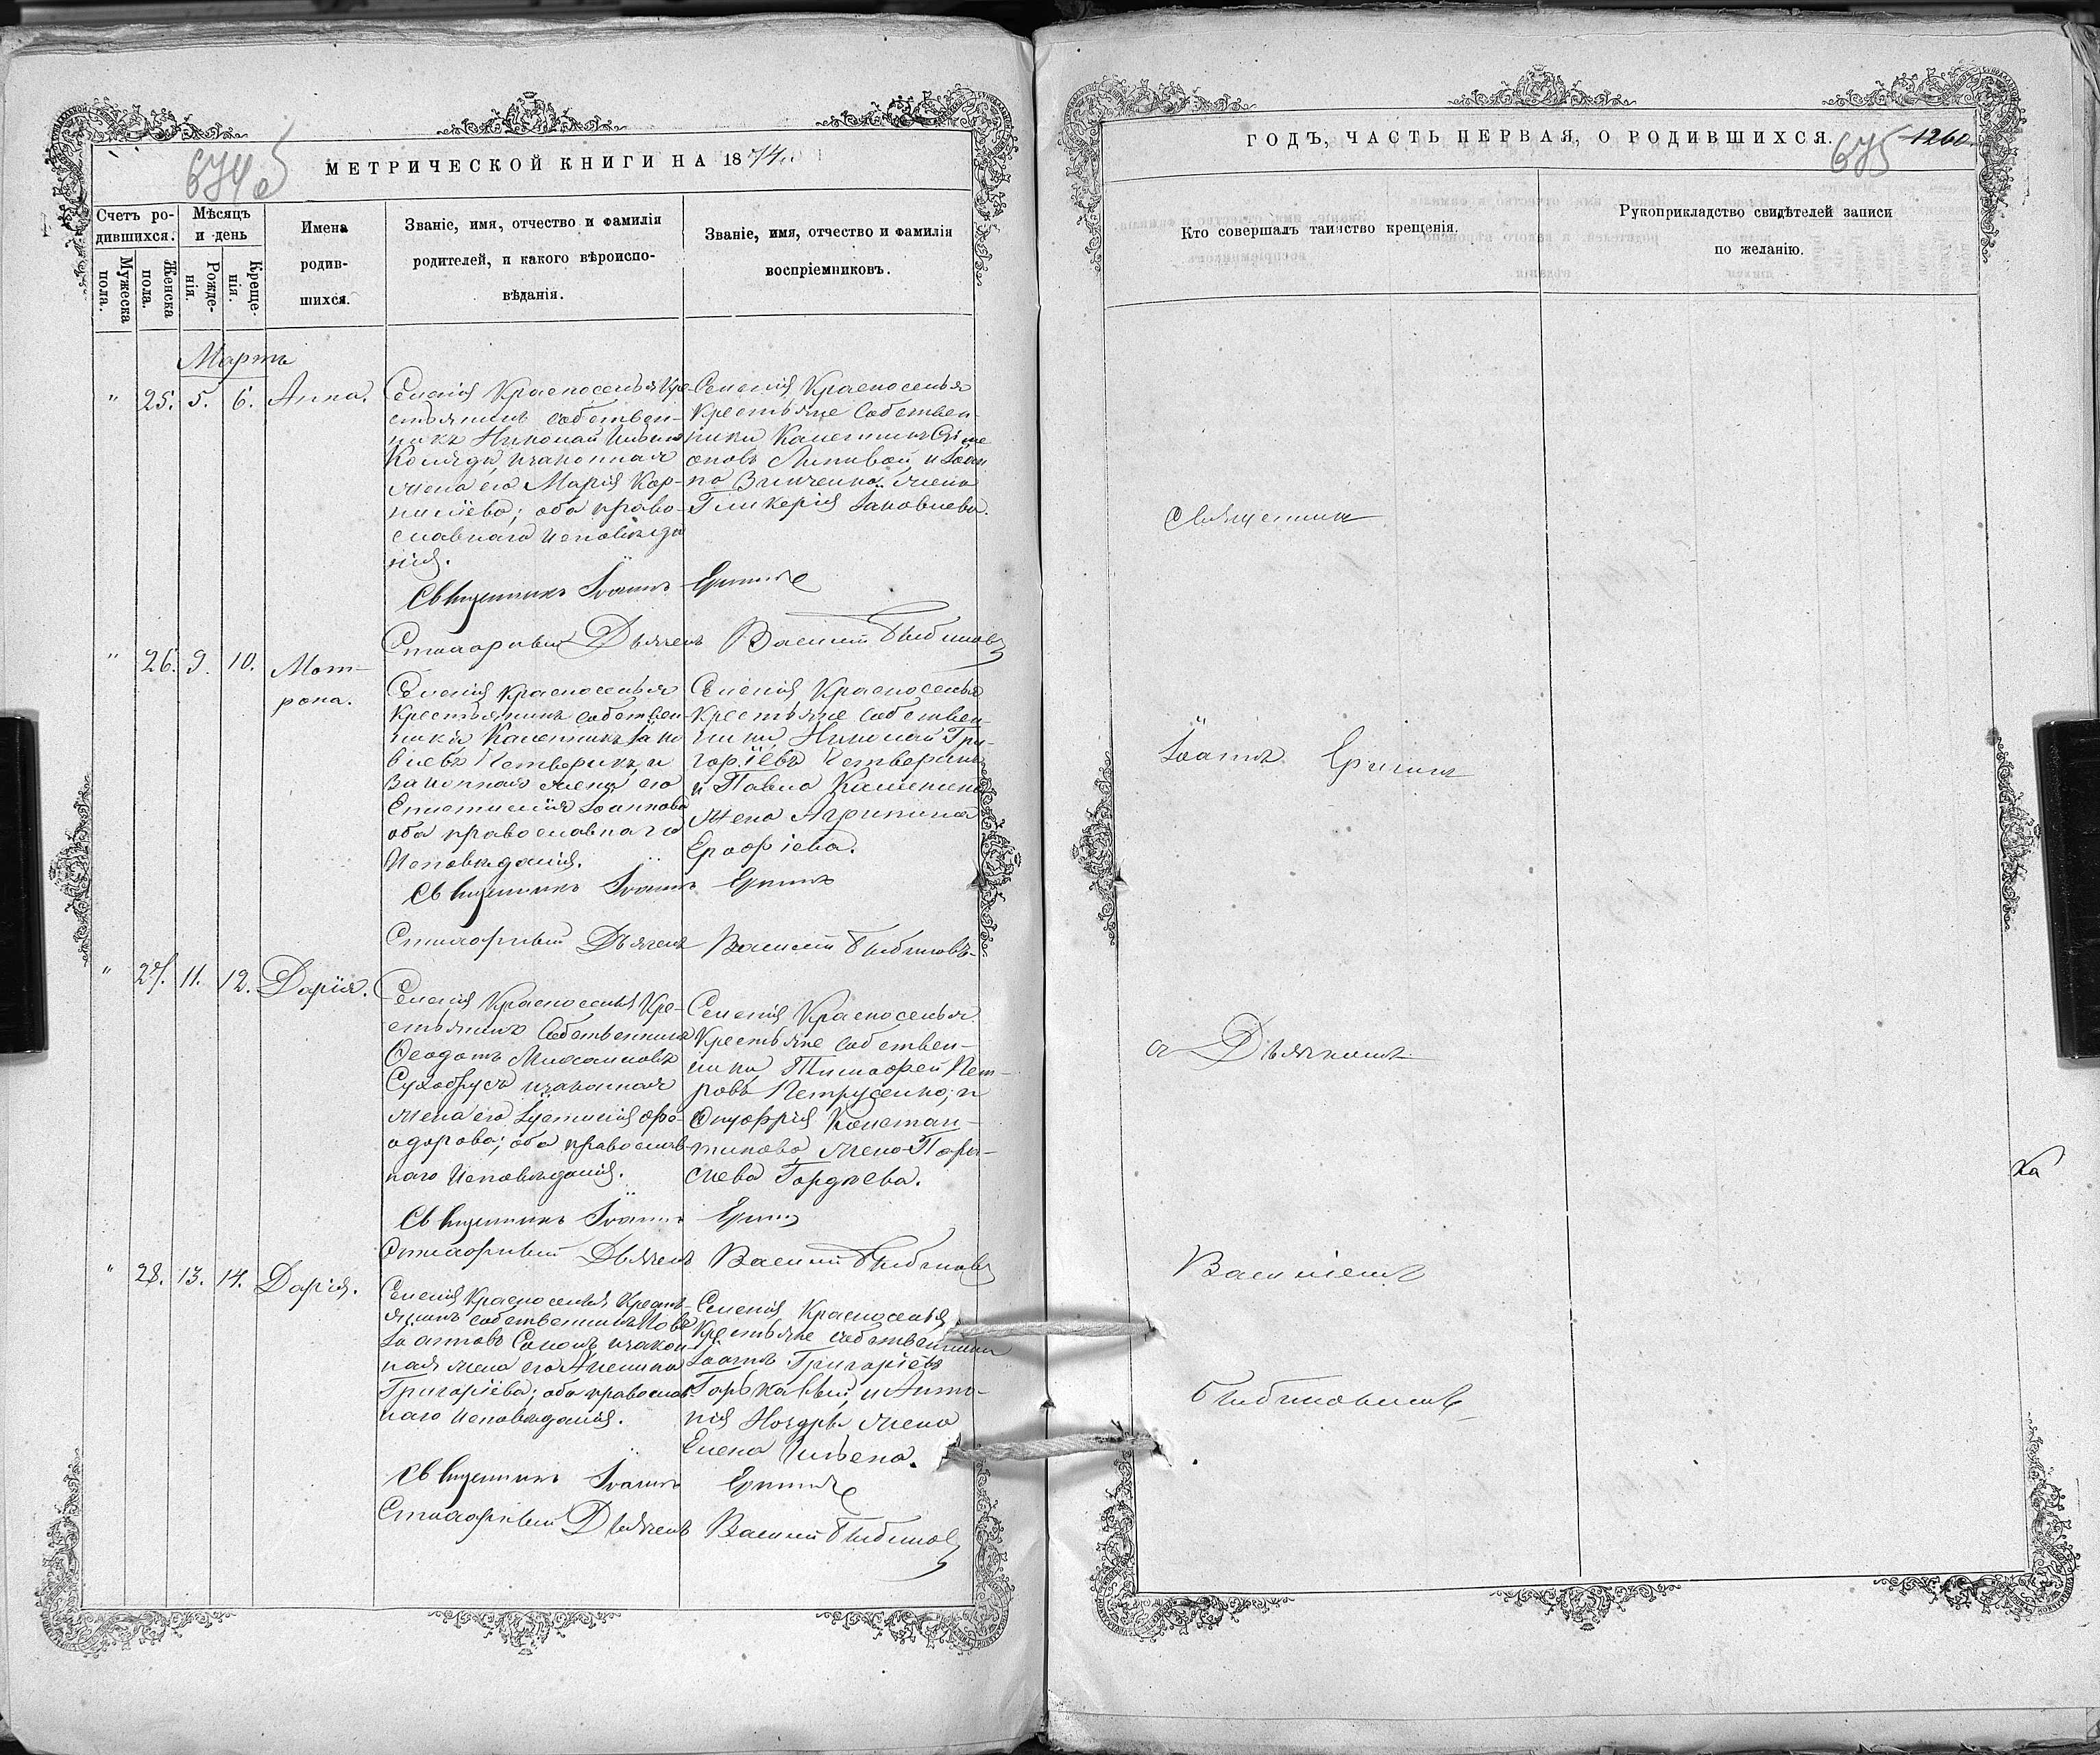 674 об
МЕТРИЧЕСКОЙ КНИГИ НА 1874.
Счетъ ро-
дившихся.
Мужеска
пола.
Женска
пола.
Мѣсяцъ
и день
Рожде-
нія.
Креще-
нія.
Имена
родив-
шихся.
Званіе, имя, отчество и фамилія
родителей, и какого вѣроиспо-
вѣданія.
Званіе, имя, отчество и фамилія
воспріемниковъ.
Мартъ
" 25. 5. 6. Анна.
Селенія Красноселья Кре-
стьянинъ собствен-
никъ Николай
Коляда, и законная
жена его Марія Кор-
нилiева; оба право-
славнаго исповѣда
нія.
Селенія Красноселья
Крестьяне собствен-
ники Калинникъ Симе
оновъ Липивой, и Іоан
на Зинченка жена
Гликерія Іаковлева.
Священникъ Іоаннъ
Стихарный Дьячекъ Василій
" 26. 9. 10. Мот-
рона.
Селенія Красноселья
Крестьянинъ собствен-
никъ Калинникъ Іако
влевъ Четверикъ, и
законная жена его
Іоаннова
оба православнаго
Исповѣданія.
Селенія Красноселья
Крестьяне собствен-
ники, Николай Гри-
горіевъ Четверикъ
и Павла
жена Агрипина
Ерофіева.
Священникъ Іоаннъ
Стихарный Дьячекъ Василій
" 27. 11. 12. Дарія.
Селенія Красноселья Кре-
стьянинъ Собственникъ
Ѳеодотъ Михаиловъ
Сухобрусъ и законная
жена его Іустинія Ѳе-
одорова; оба православ-
наго Исповѣданія.
Селенія Красноселья
Крестьяне собствен-
ники, Тимофей Пет-
ровъ Петрусенко, и
Онуфрія Констан-
тинова жена Пара-
скева Гордѣева.
Священникъ Іоаннъ
Стихарный Дьячекъ Василій
" 28. 13. 14. Дарія.
Селенія Красноселья Кресть-
янинъ собственникъ Іовъ
Іоанновъ и закон-
ная жена его Акилина
Григоріева; оба православ-
наго Исповѣданія.
Селенія Красноселья
Крестьяне собственники
Іоаннъ Григоріевъ
Горькавый, и Анто-
нія Ноздри жена
Елена
Священникъ Іоаннъ
Стихарный Дьячекъ Василій
ГОДЪ, ЧАСТЬ ПЕРВАЯ, О РОДИВШИХСЯ.
675
1260
Кто совершалъ таинство крещенія.
Рукоприкладство свидѣтелей записи
по желанію.
Священникъ
Іоаннъ
съ Дьячкомъ
Василіемъ
ка